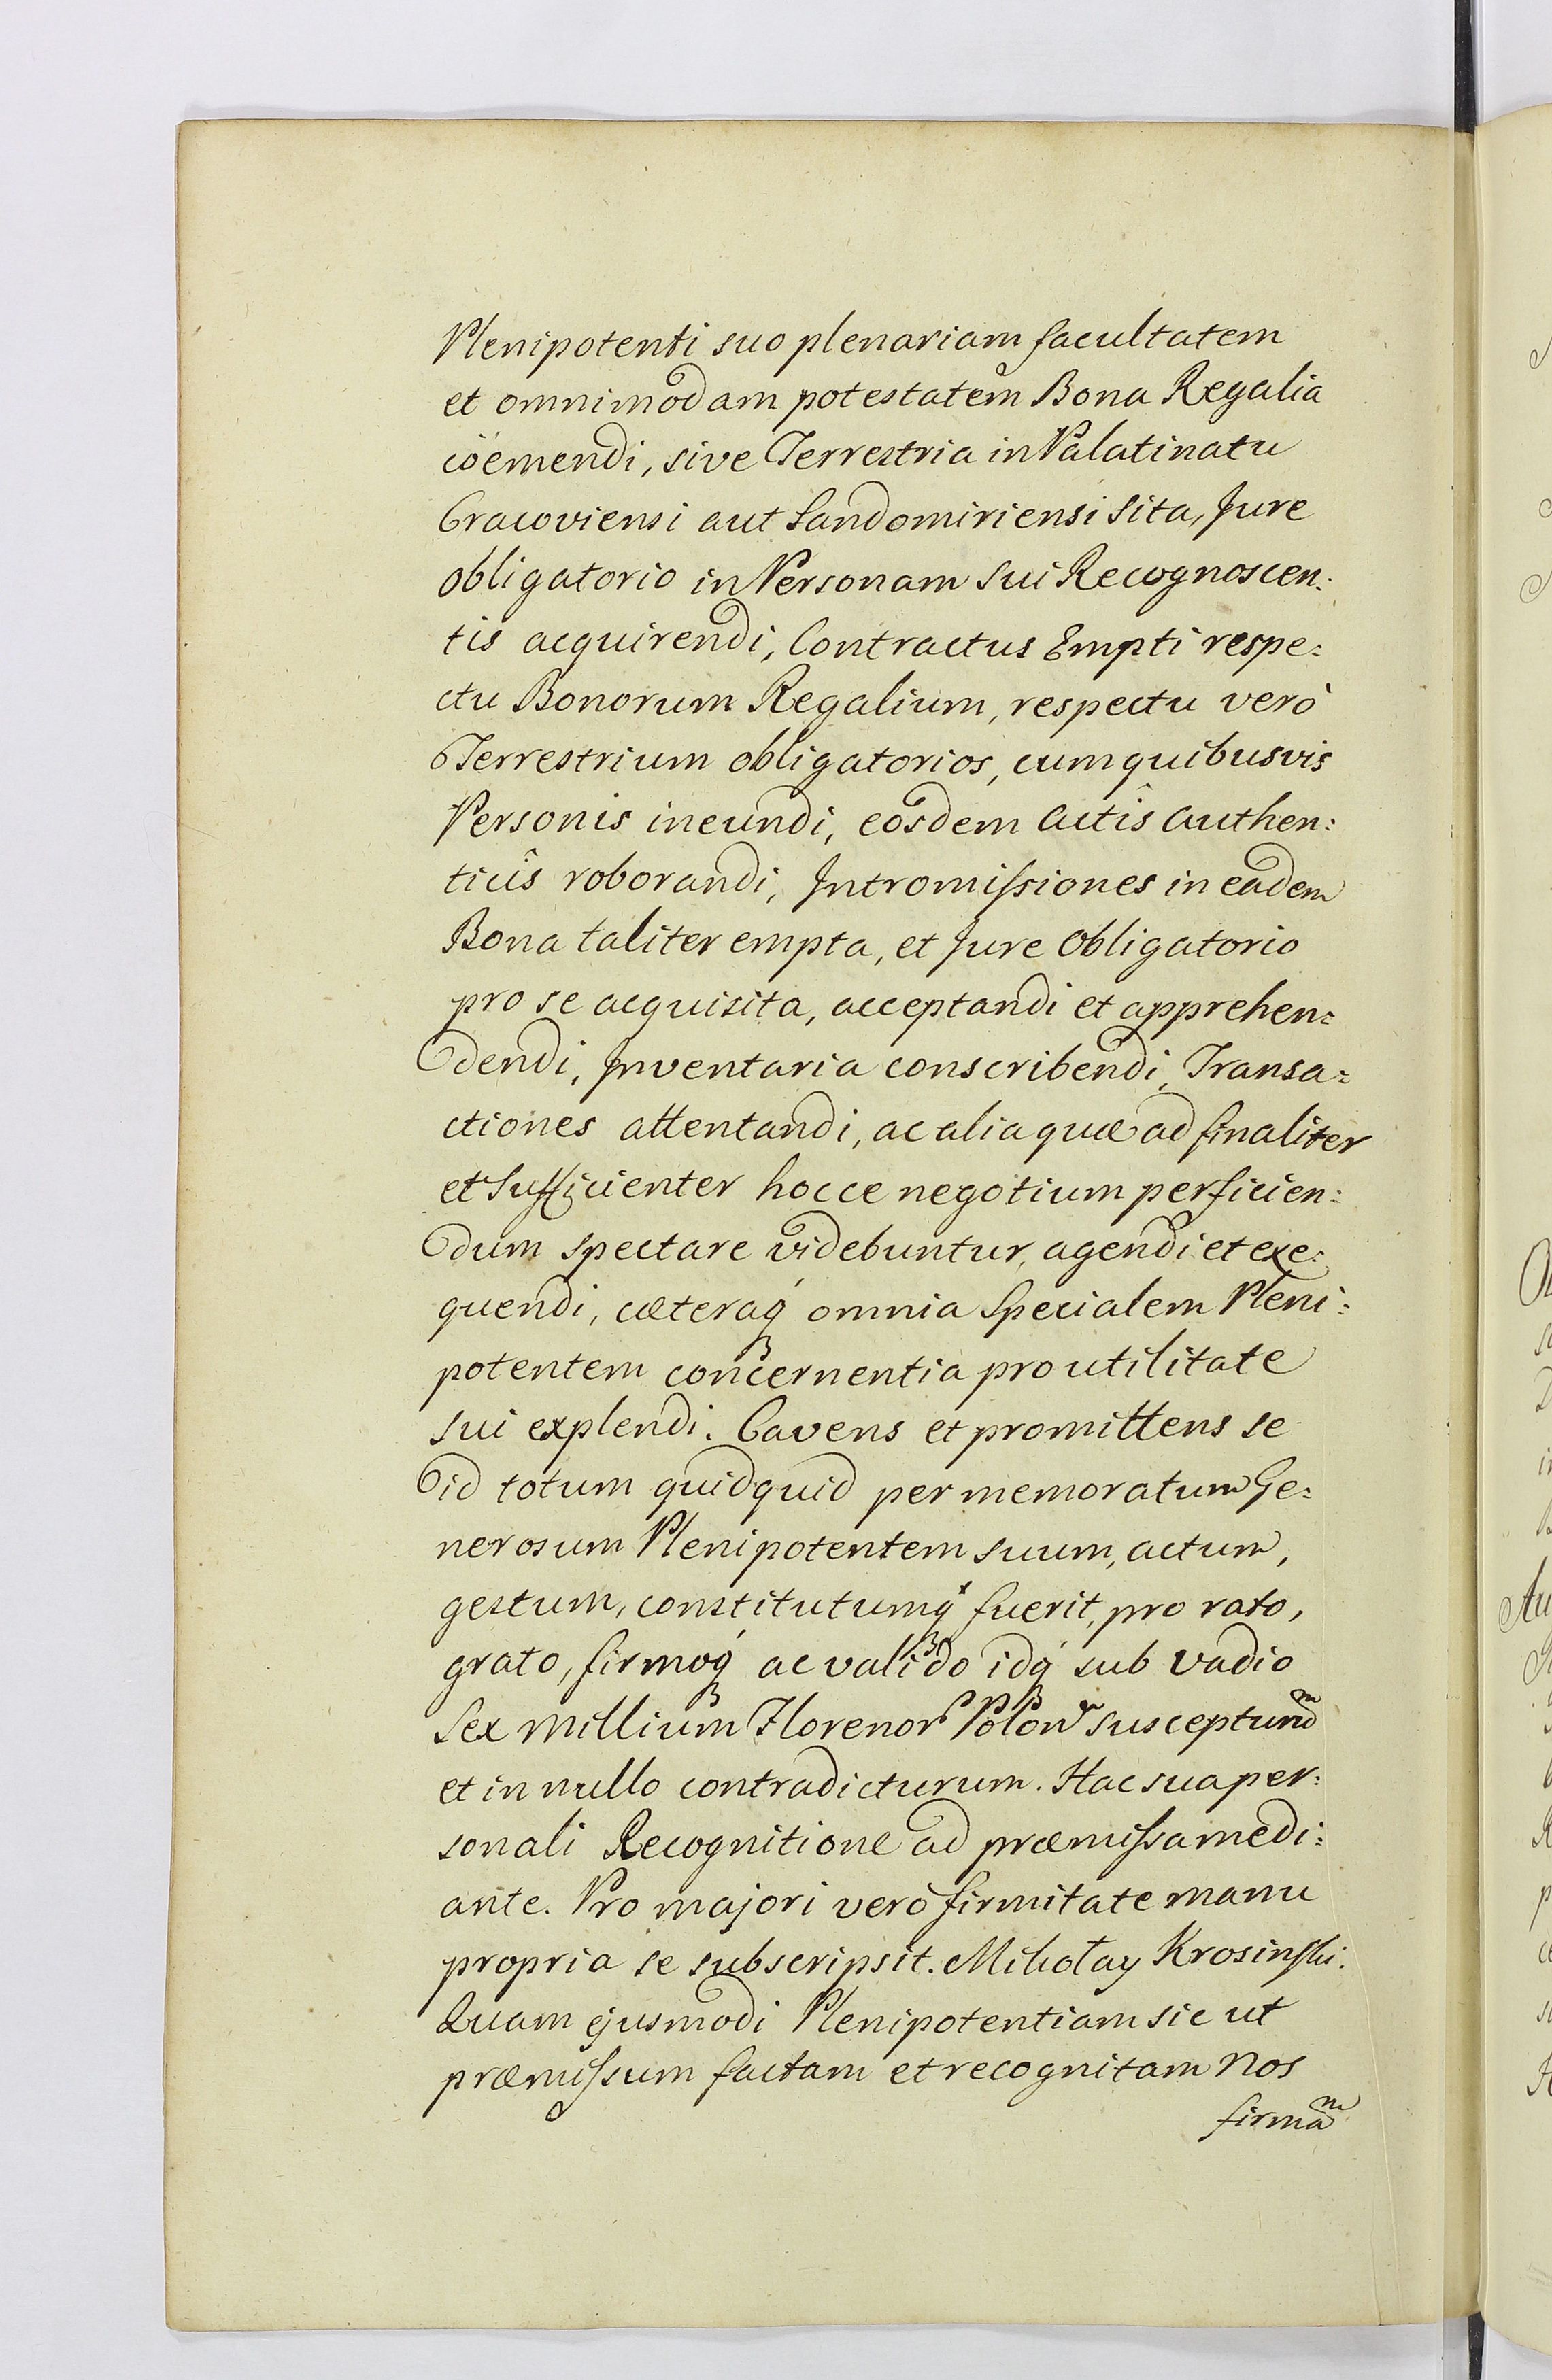 Plenipotenti suo plenariam facultatem
et omnimodam potestatem Bona Regalia
coëmendi, sive Terrestria in Palatinatu
Cracoviensi aut Sandomiriensi sita, Jure
obligatorio in Personam sui Recognoscen:
tis acquirendi, Contractus Empti respe:
ctu Bonorum Regalium, respectu verò
Terrestrium obligatorios, cum quibusvis
Personis ineundi, eosdem Actîs Authen:
ticîs roborandi, Intromissiones in eadem
Bona taliter empta, et Jure Obligatorio
pro se acquisita, acceptandi et apprehen:
dendi, Inventaria conscribendi, Transa:
ctiones attentandi, ac alia quæ ad finaliter
et Sufficienter hocce negotium perficien:
dum spectare videbuntur, agendi et exe:
quendi, cæteraq́ omnia Specialem Pleni:
potentem concernentia pro utilitate
sui explendi. Cavens et promittens se
id totum quidquid per memoratum Ge:
nerosum Plenipotentem suum, actum,
gestum, constitutumq́ fuerit, pro rato,
grato, firmoq́ ac valido idq́ sub vadio
Sex Millium Florenor Polon susceptur̃
et in nullo contradicturum. Hac sua per:
sonali Recognitione ad præmissa medi:
ante. Pro majori verò firmitate manu
propria se subscripsit. Mikołay Krosinski.
Quam ejusmodi Plenipotentiam sic ut
præmissum factam et recognitam Nos
firmam